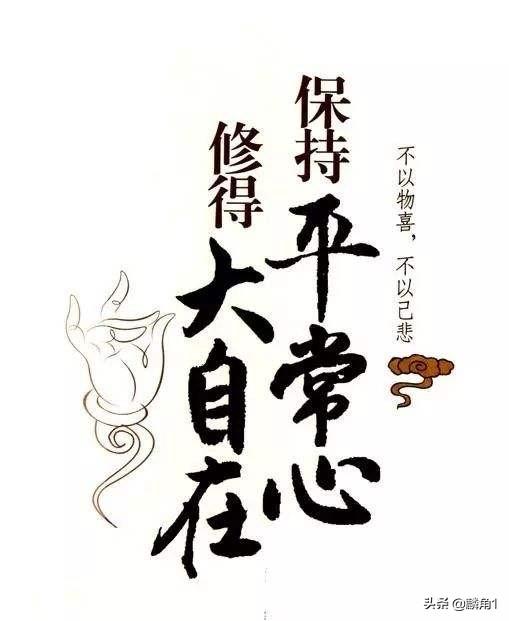 不以物喜，不以己悲
保持平常心
修得大自在
头条 @麟角1